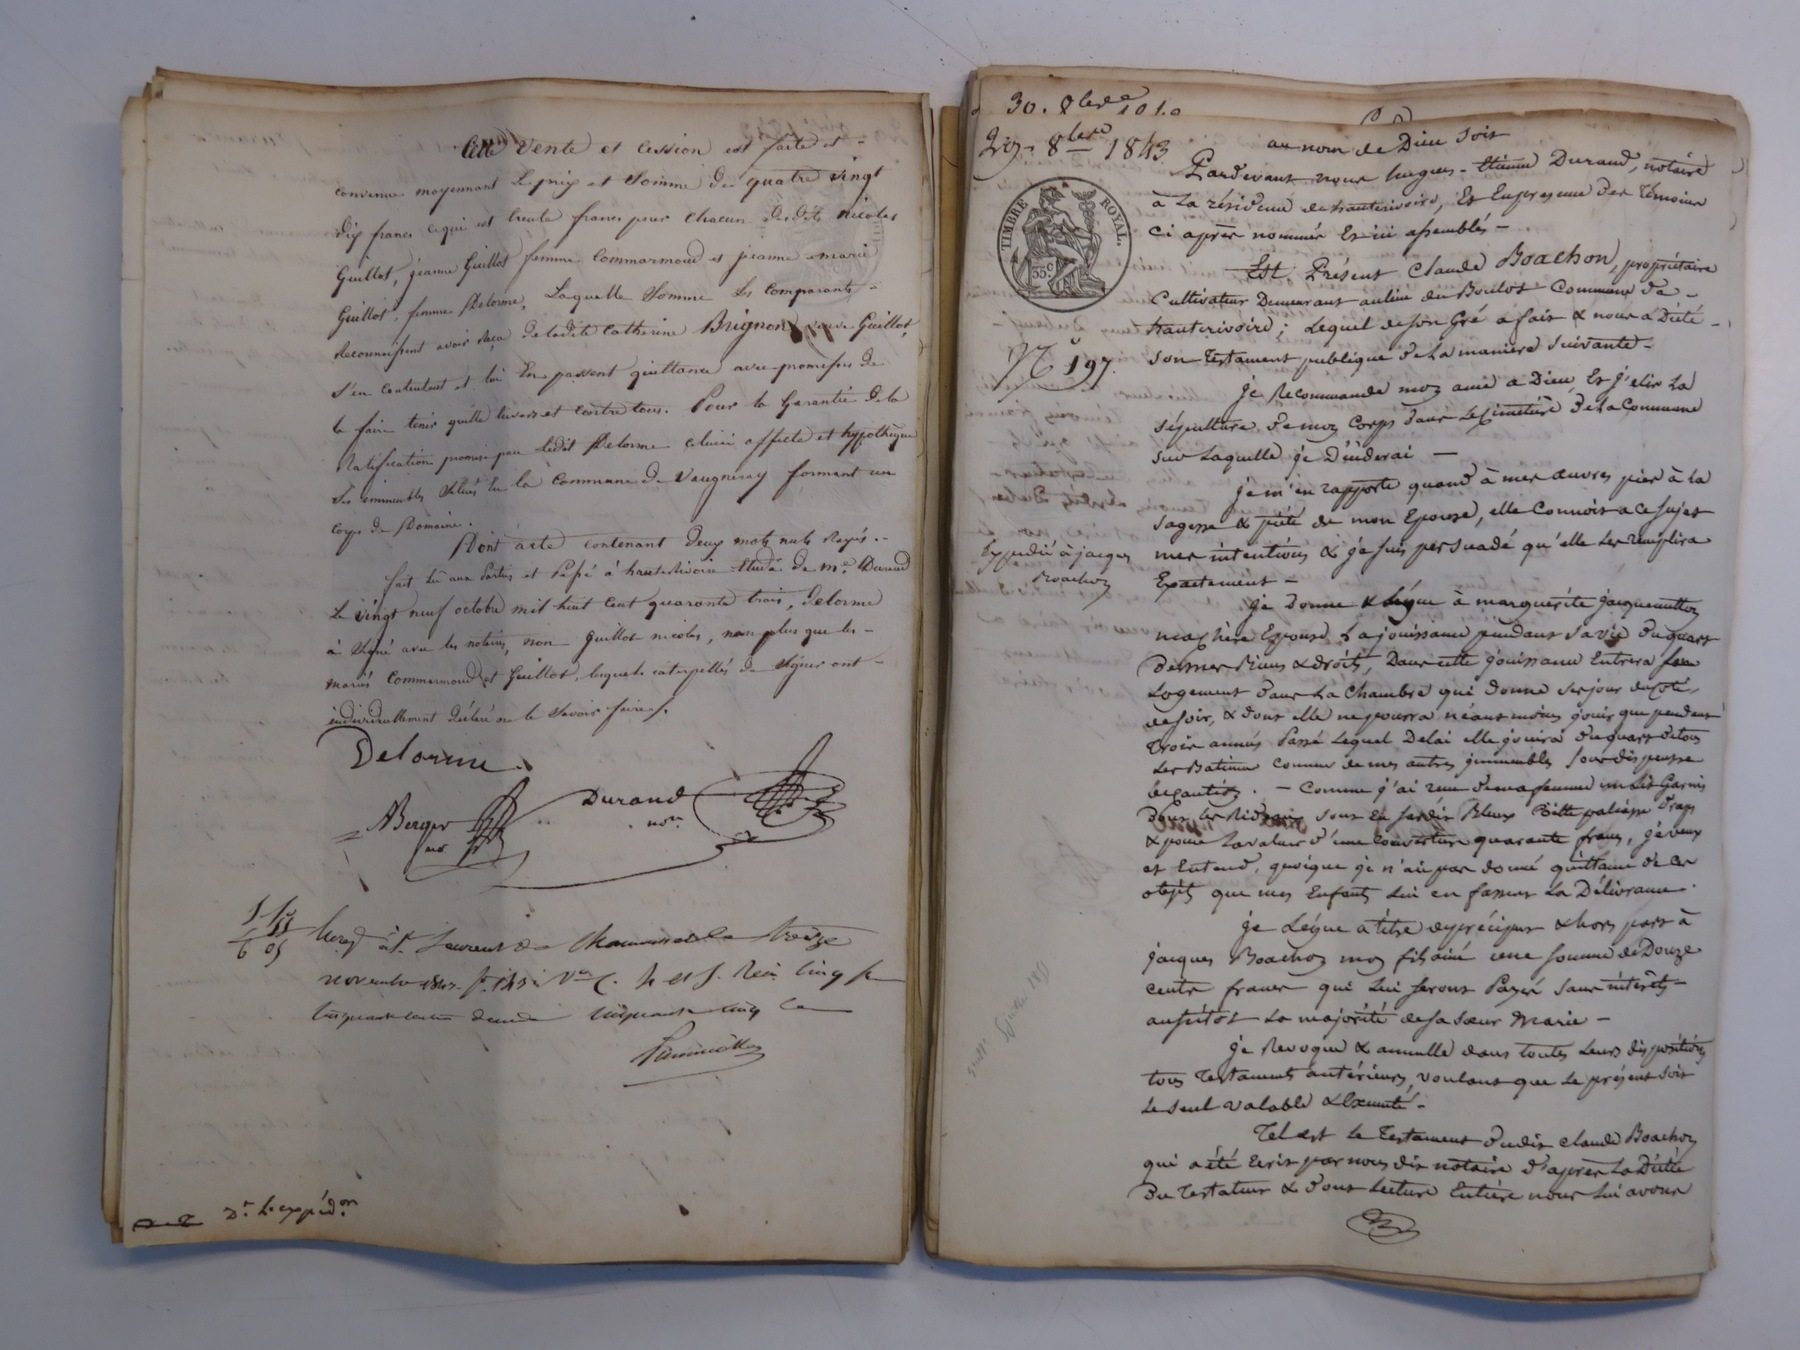 Cette vente et cession est faite et -
convenue moyennant le prix et Somme de quatre vingt
dix francs ce qui est trente francs pour chacun desdits nicolas
Guillot, jeanne Guillot femme Commarmond et jeanne marie
Guillot femme Delorme, Laquelle Somme les Comparants -
Reconnaissent avoir Reçu de ladite Catherine Brignon veuve Guillot,
s'en contentent et lui En passent quittance avec promesses de
le faire tenir quitte envers et contre tous. Pour la Garantie de la
Ratification promise par ledit Delorme celui ci affecte et hypothèque
Ses immeubles Situés en la Commune de Vaugneray formant un
Corps de Domaine.
Dont acte contenant deux mots nuls Rayés. -
fait lu aux Parties et Passé à hauterivoire Etude de me. Durand
Le vingt neuf octobre mil huit Cent quarante trois, Delorme
à Signé avec les notaires, non Guillot nicolas, non plus que les -
mariés Commarmond et Guillot, lesquels interpellés de Signer ont -
individuellement déclaré ne le Savoir faire.
Delorme
ABerger
no
Durand
nore
Enreg. à St. Laurent de Chamousset le treize
novembre 1843 fo. 145 Vo C. 4 et 5. Reçu Cinq fr
Cinquante centimes decime Cinquante cinq Ce
Dt. L'expédon
30. 8bre
29. 8bre 1843
TIMBRE ROYAL.
35c
No 197.
Expedié à jacques
Boachon
au nom de Dieu Soit
Pardevant nous hugues-étienne Durand, notaire
à La résidence de hauterivoire, Et En presence des Témoins
Ci après nommés Et ici assemblés -
Est Présent Claude Boachon, propriétaire
Cultivateur Demeurant au lieu du Boulot Commune de -
hauterivoire; Lequel de son Gré a fait & nous a Dicté -
son Testament publique de La maniere Suivante -
je Recommande mon ame a Dieu Et j'elis La
Sépulture de mon Corps dans Le Cimetière de La Commune
sur Laquelle je Décéderai -
je m'en rapporte quand à mes œuvres pies à la
sagesse & piété de mon Epouse, elle Connoit a ce Sujet
mes intentions & je suis persuadé qu'elle Les Remplira
Exactement -
je donne & Lègue à marguerite jacquemetton
ma chère Epouse La jouissance pendant Sa vie du quart
de mes Biens & droits, Dans cette jouissance Entrera son
Logement dans La Chambre qui donne Ses jours du côté
de soir, & dont elle ne pourra néant moins jouir que pendant
trois années Passé Lequel Delai elle jouira du quart de tous
Les Batimens Comme de mes autres immeubles sous dispense
de Caution. - Comme j'ai reçu de ma femme un Lit Garni
dont Les Rideaux sont En Sardis Bleux Ditte paliasse Draps
& pour La valeur d'une Couverture quarante francs, je veux
et Entend, quoique je n'ai pas donné quittance de ces
objets que mes Enfants Lui en fassent La Délivrance.
je Lègue a titre de préciput & hors part à
jacques Boachon mon fils ainé une Somme de Douze
cents francs qui Lui seront Payés Sans intérêts -
aussitôt La majorité de sa sœur Marie -
je Revoque & annulle dans toutes Leurs dispositions
tous Testaments antérieurs, voulant que Le présent soit
Le seul valable & Executé -
Tel est Le Testament dudit Claude Boachon
qui a été Ecrit par nous dit notaire d'après La Dictée
Du Testateur & dont Lecture Entière nous Lui avons